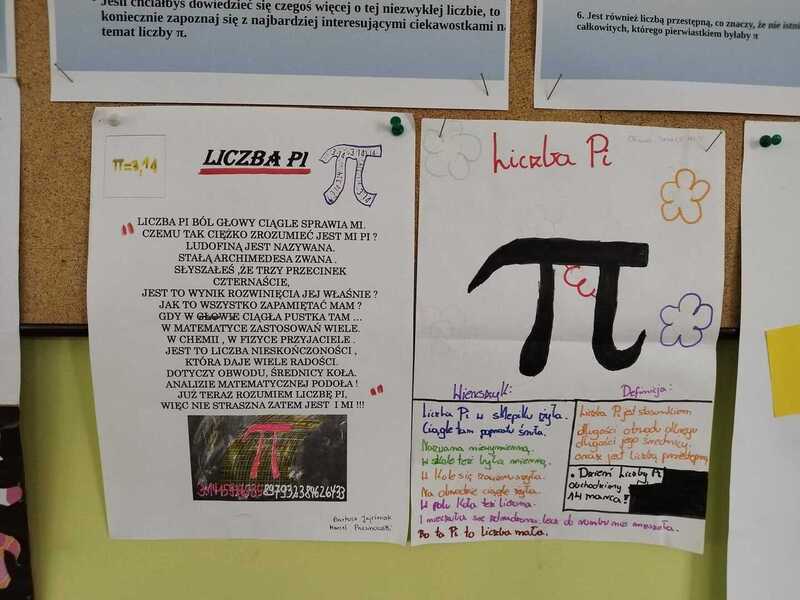 Jeśli chciałbyś dowiedzieć się czegoś więcej o tej niezwykłej liczbie, to
koniecznie zapoznaj się z najbardziej interesującymi ciekawostkami na
temat liczby π.
6. Jest również liczbą przestępną, co znaczy, że nie
całkowitych, którego pierwiastkiem byłaby π
π=3,14
LICZBA PI
LICZBA PI BÓL GŁOWY CIĄGLE SPRAWIA MI.
CZEMU TAK CIĘŻKO ZROZUMIEĆ JEST MI PI ?
LUDOFINĄ JEST NAZYWANA.
STAŁĄ ARCHIMEDESA ZWANA .
SŁYSZAŁEŚ ,ŻE TRZY PRZECINEK
CZTERNAŚCIE,
JEST TO WYNIK ROZWINIĘCIA JEJ WŁAŚNIE ?
JAK TO WSZYSTKO ZAPAMIĘTAĆ MAM ?
GDY W GŁOWIE CIĄGŁA PUSTKA TAM ...
W MATEMATYCE ZASTOSOWAŃ WIELE.
W CHEMII , W FIZYCE PRZYJACIELE .
JEST TO LICZBA NIESKOŃCZONOŚCI ,
KTÓRA DAJE WIELE RADOŚCI.
DOTYCZY OBWODU, ŚREDNICY KOŁA.
ANALIZIE MATEMATYCZNEJ PODOŁA !
JUŻ TERAZ ROZUMIEM LICZBĘ PI,
WIĘC NIE STRASZNA ZATEM JEST I MI !!!
Bartosz
Marcel
Liczba Pi
π
Wierszyk:
Liczba Pi w sklepiku żyła.
Ciągle tam poprostu śniła.
Nazwana niewymierną.
w szkole też była mierną.
W Kole się
Na obwodzie ciągle żyła.
W polu Koła też liczona.
Bo ta Pi to liczba mała.
Definicja:
Liczba Pi jest stosunkiem
długości obwodu
długości jego średnicy.
oraz jest liczbą przestępną
• Dzień Liczby Pi
obchodzimy
14 marca!